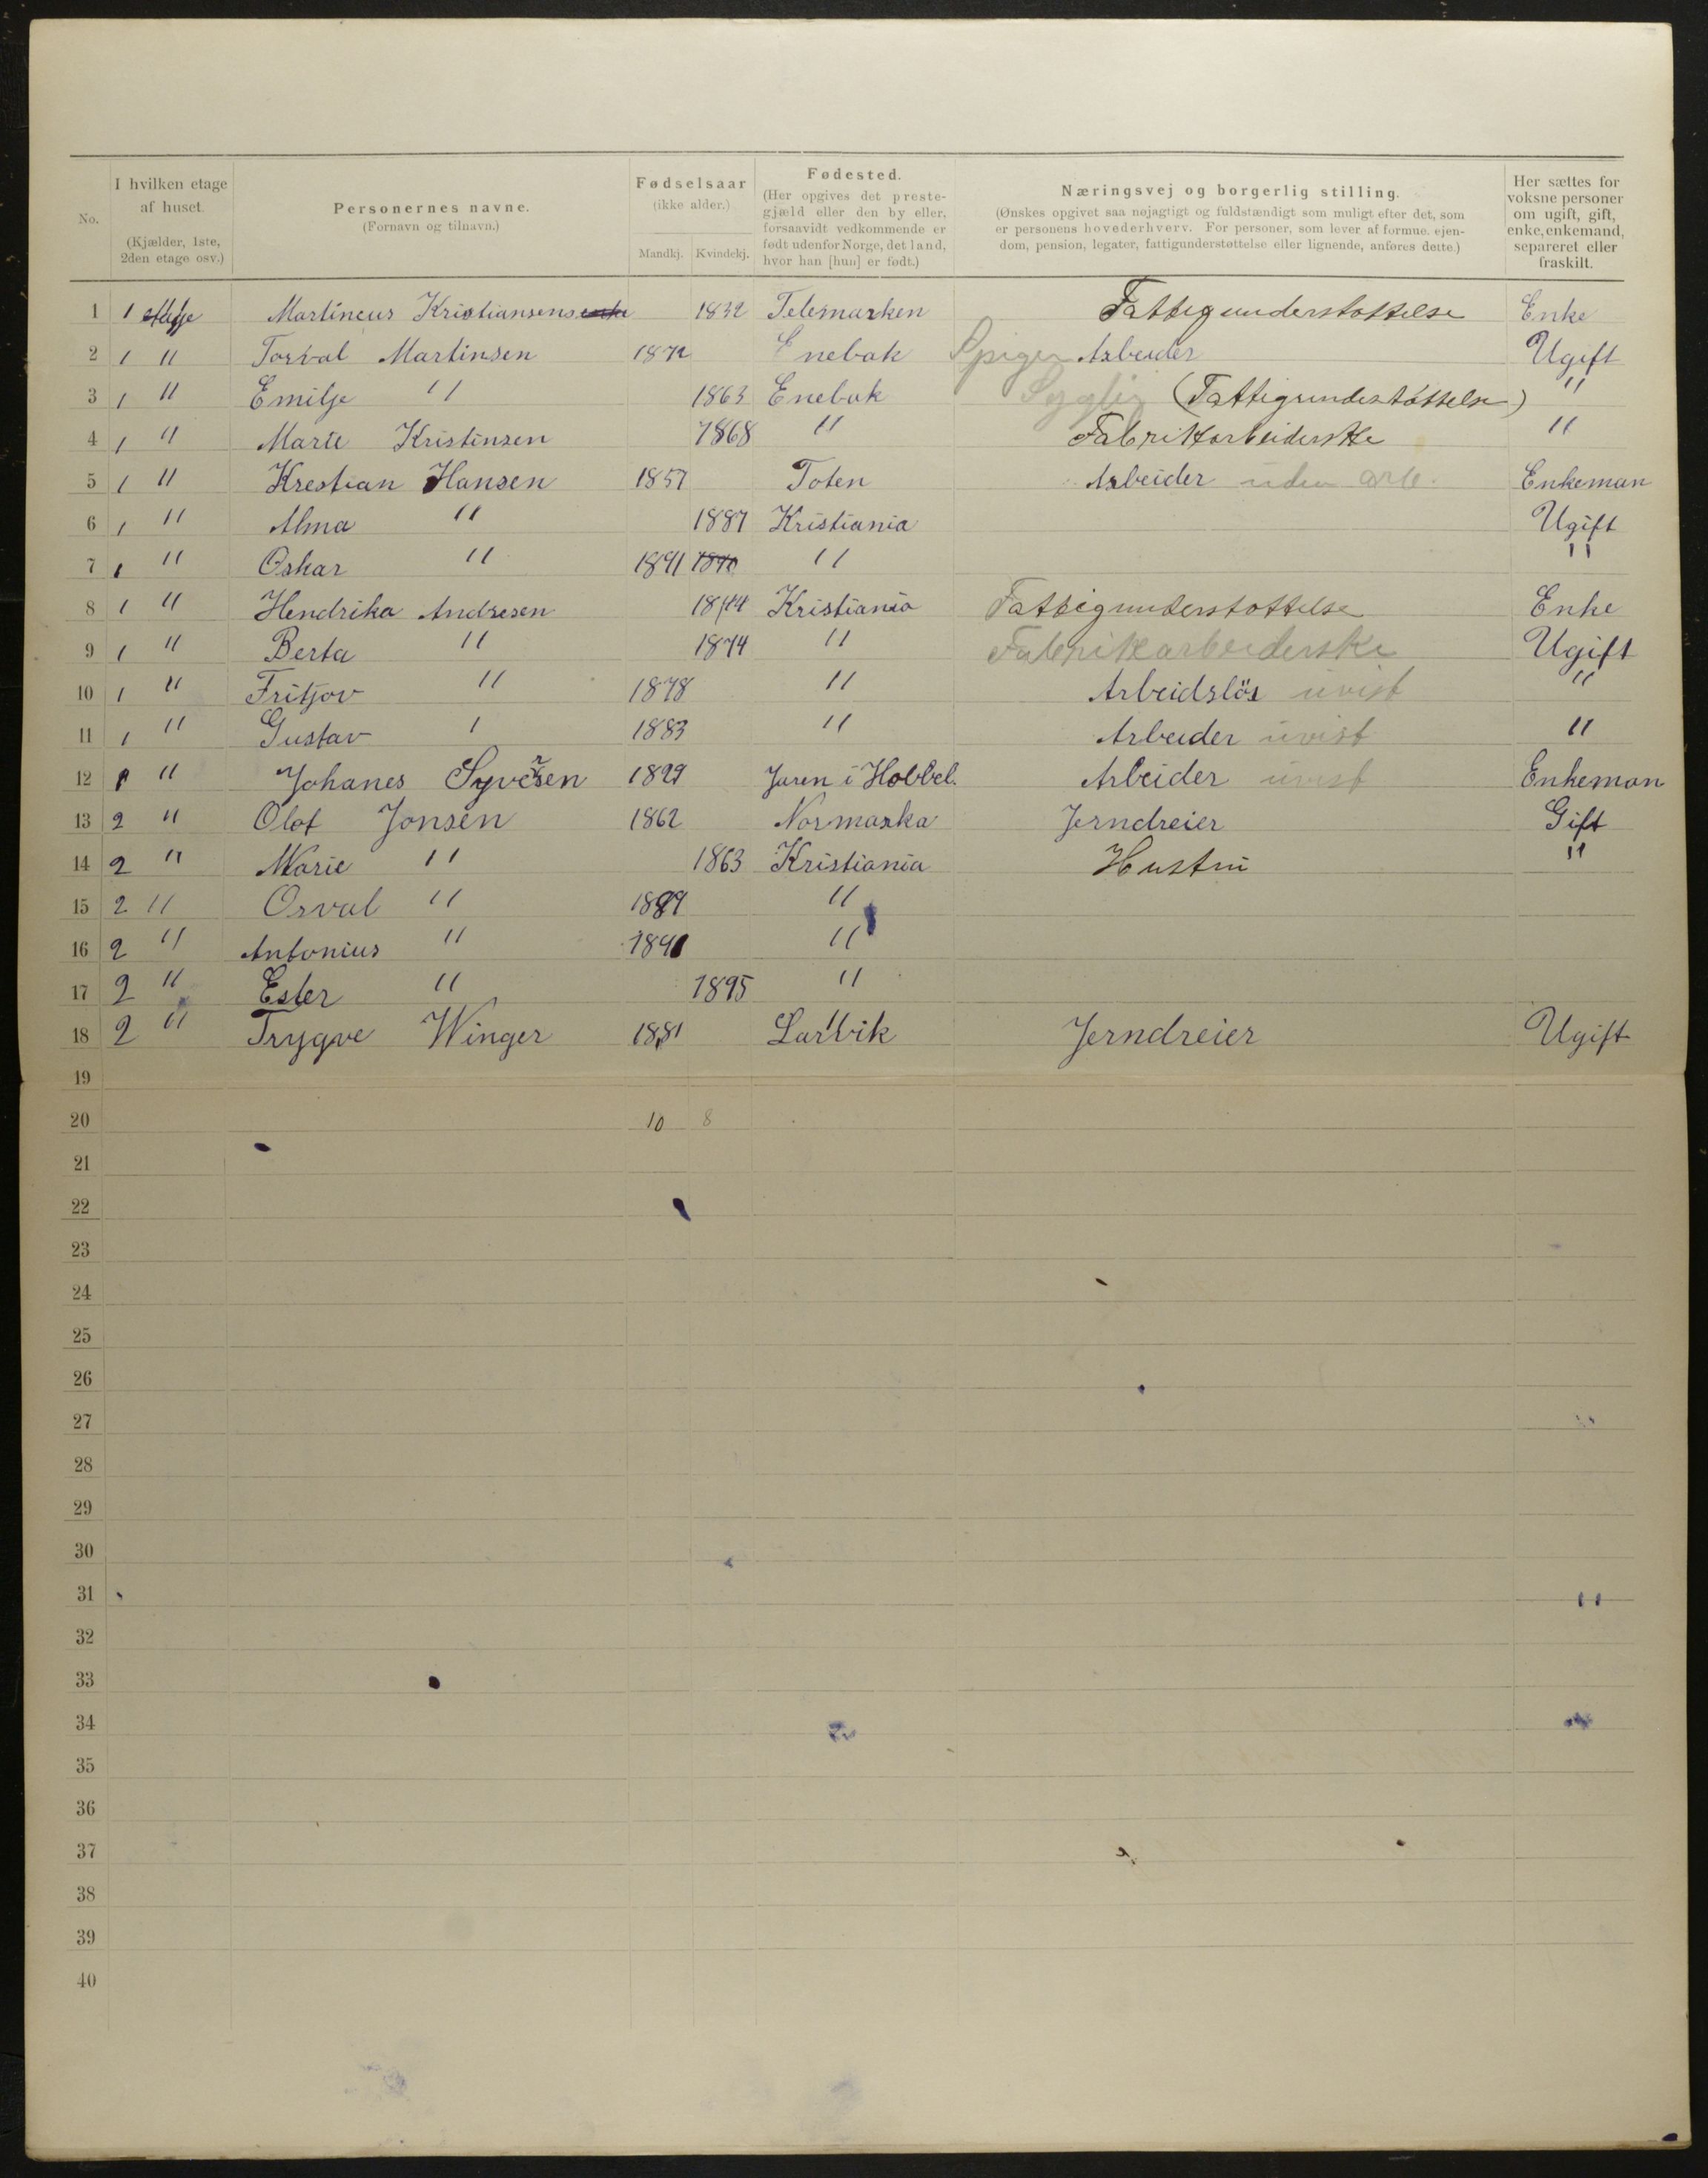 No. | I hvilken etage af huset. (Kjælder, 1ste, 2den etage osv.) | Personernes navne. (Fornavn og tilnavn.) | Fødselsaar (ikke alder.) Mandkj. Kvindekj. | Fødested. (Her opgives det prestegjæld eller den by eller, forsaavidt vedkommende er født udenfor Norge, det land, hvor han [hun] er født.) | Næringsvej og borgerlig stilling. (Ønskes opgivet saa nøjagtigt og fuldstændigt som muligt efter det, som er personens hovederhverv. For personer, som lever af formue, ejendom, pension, legater, fattigunderstøttelse eller lignende, anføres dette.) | Her sættes for voksne personer om ugift, gift, enke, enkemand, separeret eller fraskilt.
1 1 etage Martineus Kristiansens enke 1832 Telemarken Fattigunderstottelse Enke
2 1 " Torval Martinsen 1872 Enebak Spiger Arbeider Ugift
3 1 " Emilje " 1863 Enebak Syglig (Fattigunderstøttelse) "
4 1 " Marie Kristinsen 1868 " Fabrikkarbeiderske "
5 1 " Krestian Hansen 1857 Toten Arbeider uden arb. Enkeman
6 1 " Alma " 1887 Kristiania Ugift
7 1 " Oskar " 1891 1890 " "
8 1 " Hendrika Andresen 1844 Kristiania Fattigunderstottelse Enke
9 1 " Berta " 1874 " Fabrikkarbeiderske Ugift
10 1 " Fritjov " 1878 " Arbeidslös uvist "
11 1 " Gustav " 1883 " Arbeider uvist "
12 1 " Johanes Syversen 1829 Jaren i Hobbel. Arbeider uvist Enkeman
13 2 " Olof Jonsen 1862 Normarka Jerndreier Gift
14 2 " Marie " 1863 Kristiania Hustru "
15 2 " Orval " 1889 "
16 2 " Antonius " 1891 "
17 2 " Ester " 1895 "
18 2 " Trygve Winger 1881 Larvik Jerndreier Ugift
19
20 10 8
21
22
23
24
25
26
27
28
29
30
31
32
33
34
35
36
37
38
39
40